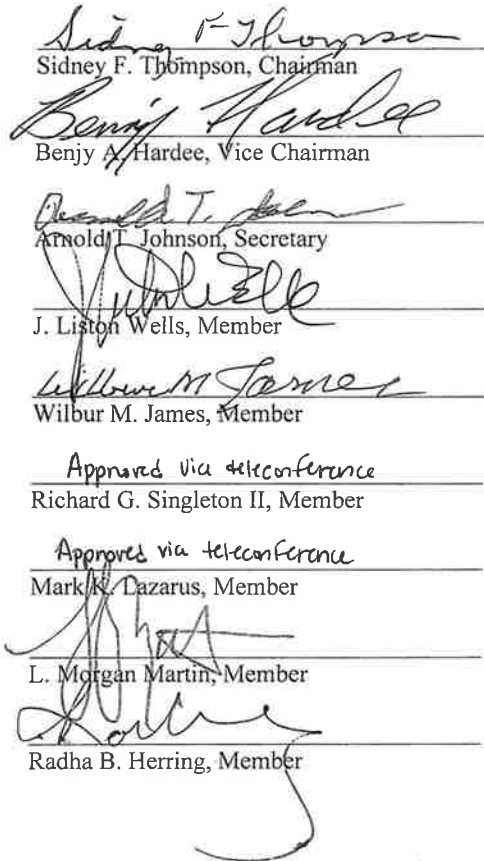 Sidney F Thompson
Sidney F. Thompson, Chairman
Benjy Hardee
Benjy A. Hardee, Vice Chairman
Arnold T.
Arnold T. Johnson, Secretary
J. Liston Wells, Member
Wilbur M James
Wilbur M. James, Member
Approved via teleconference
Richard G. Singleton II, Member
Approved via teleconference
Mark K. Lazarus, Member
L. Morgan Martin, Member
Radha B. Herring, Member